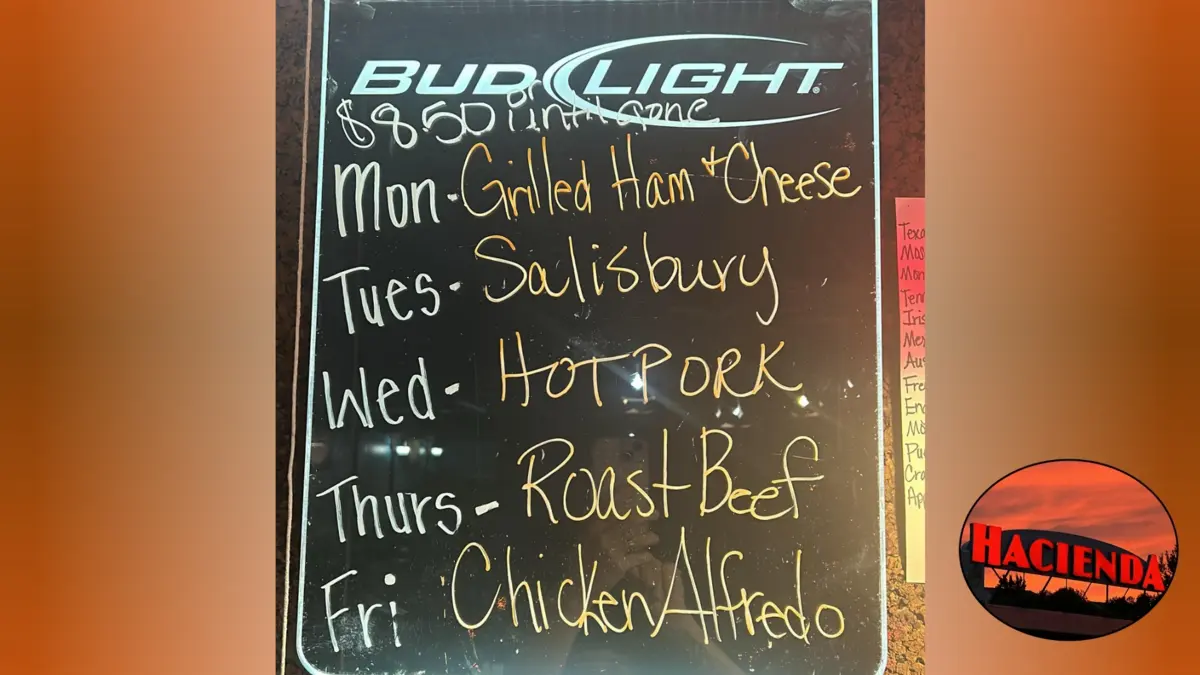 BUD LIGHT
$8.50 or until gone
Mon - Grilled Ham + Cheese
Tues - Salisbury
Wed - HOT PORK
Thurs - Roast Beef
Fri Chicken Alfredo
Texa
Mos
Man
Tenn
Iris
Mex
Aus
Fre
En
Mo
Pu
Cro
Ap
HACIENDA